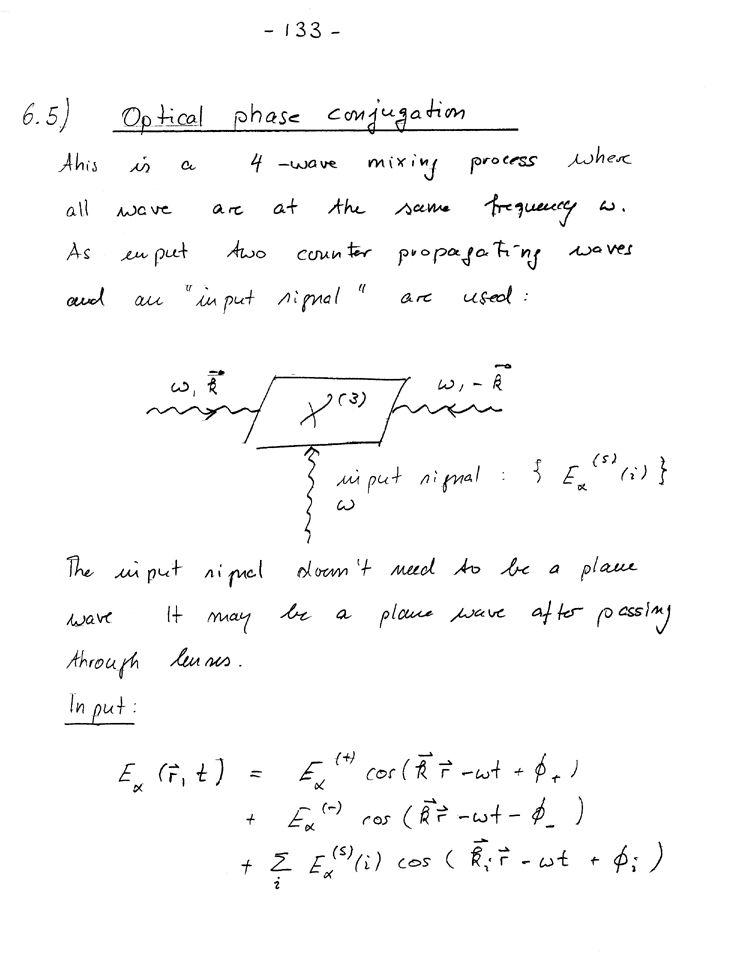 - 133 -
6.5) Optical phase conjugation
This is a 4-wave mixing process where
all wave are at the same frequency ω.
As input two counter propagating waves
and an "input signal" are used:
ω, k⃗ χ^(3) ω, -k⃗
input signal : { E_α^(s)(i) }
ω
The input signal doesn't need to be a plane
wave It may be a plane wave after passing
through lenses.
Input:
E_α (r⃗, t) = E_α^(+) cos(k⃗ r⃗ - ωt + ϕ_+)
+ E_α^(-) cos (k⃗ r⃗ - ωt - ϕ_-)
+ Σ_i E_α^(s)(i) cos ( k⃗_i r⃗ - ωt + ϕ_i )